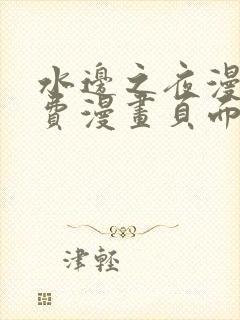 水邊之夜漫
費漫畫頁而
津輕